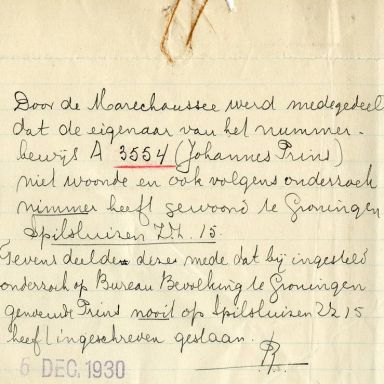 Door de Marechaussee werd medegedeel
dat de eigenaar van het nummer-
bewijs A 3554 (Johannes Prins)
niet woonde en ook volgens onderzoek
nimmer heeft gewoond te Groningen
Spilsluizen ZZ. 15.
Tevens deelde deze mede dat bij ingesteld
onderzoek op Bureau Bevolking te Groningen
genoemde Prins nooit op Spilsluizen ZZ 15
heeft ingeschreven gestaan.
6 DEC. 1930